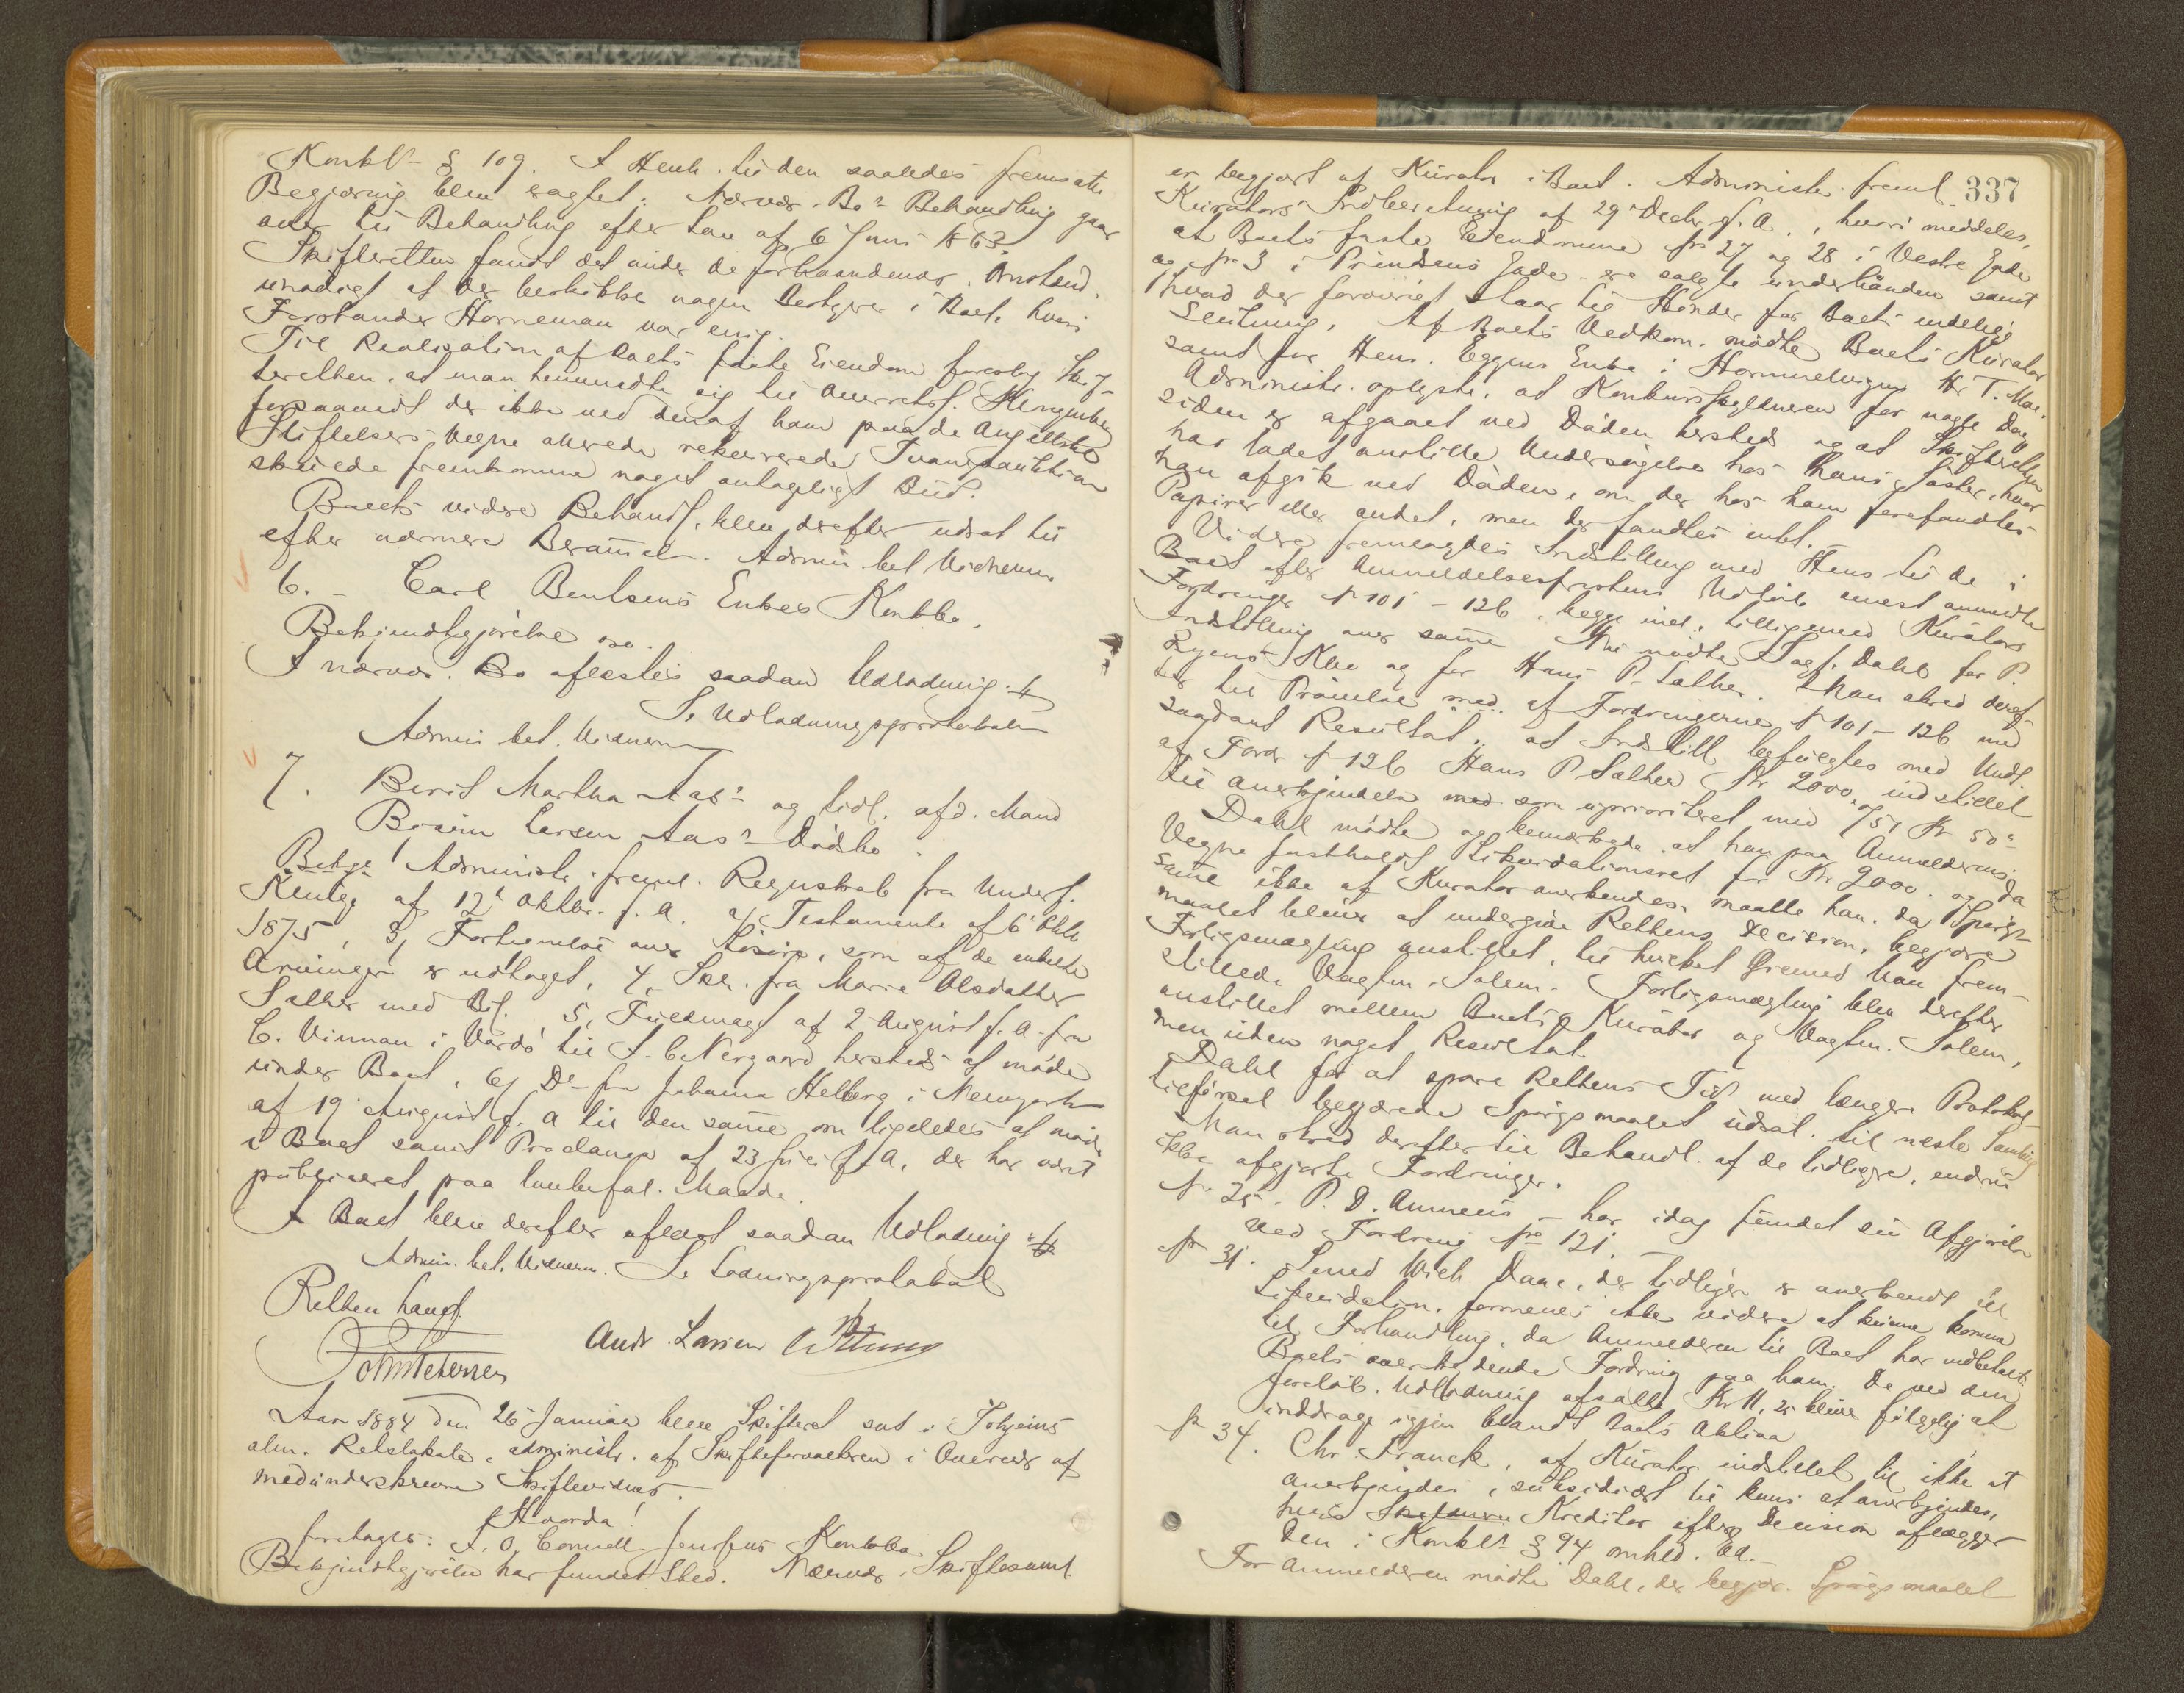 Konkl- § 109. I Henh. til den saaledes fremsatte
Begjæring blev sagtet: Nærvær. Bo's Behandling gaar
over til Behandling efter Lov af 6 Juni 1863.
Skifteretten fandt det under de forhaandenvær. Omstænd.
unødigt at der beskikkes nogen Bestyrer i Boet, hvori
Forstander Horneman var enig.
Til Realisation af Boets faste Eiendom foreslog Skif-
teretten, at man henvendte sig til Overretss.
forsaavidt der ikke ved den af ham paa de Angellske
Stiftelsers Vegne allerede rekvirerede Tvangsauktion
skulde fremkomme noget antageligt Bud.
Boets videre Behandl. blev derefter udsat til
efter nærmere Berammelse. Admin. bet. Vidnerne
6. - Carl Bentsens Enkes Konkbo.
Bekjendtgjørelse osv.
I nærvær. Bo aflæstes saadan Udlodning #
S. Udlodningsprotokolen
Admin. bet. Vidnerne
7. Berit Martha Aas's og tidl. afd. Mand
Larsen Aas's Dødsbo.
Bekgj. Administr. freml. Regnskab fra Underf.
af 12te Oktbr. f. A. 2, Testamente af 6 Oktb
1875, 3, Fortegnelse over Løsøre, som af de enkelte
Arvinger er udtaget, 4, Skr. fra Marie Olsdatter
Sæther med Bil. 5, Fuldmagt af 2 August f. A. fra
C. Vinnan i Vardø til I. C. Nergaard hersteds at møde
under Boet, 6, Do fra Johanna Helberg i Newyork
af 19 August f. A. til den samme om ligeledes at møde
i Boet samt Proclama af 23 Juli f. A., der har været
publiceret paa lovbefal. Maade.
I Boet blev derefter aflæst saadan Udlodning #
Admin. bet. Vidnerne. S. Lodningsprotokol
Retten hævet
Andr. Larsen
Aar 1884 den 26 Januar blev Skifteret sat i Tohjems
alm. Retslokale, administr. af Skifteforvalteren i Overvær af
medunderskrevne Skiftevidner.
Hvorda!
foretages: I, O, Cornell Jenssens Konkbo.
Bekjendtgjørelse har fundet Sted. Nærvær. Skiftesaml.
337
er begjært af Kurator i Boet. Administr. freml.
Kurators Indberetning af 29 Decbr f. A., hvori meddeles,
at Boets faste Eiendomme No 27 og 28 i Vestre Gade
og No 3 i Prindsens Gade er solgte underhaanden samt
hvad der forøvrigt staar til Hinder for Boets endelige
Slutning. Af Boets Vedkom. mødte Boets Kurator
samt for Hens. Eggens Enke i Hommelvigen Hr T. Moe.
Administr. oplyste, at Konkursskyldneren for nogle Dage
siden er afgaaet ved Døden hersteds og at Skifteretten
har ladet anstille Undersøgelse hos hans Søster, hvor
han afgik ved Døden, om der hos ham forefandtes
Papirer eller andet, men der fandtes intet.
Videre fremlagdes Indstilling med Hens. til de i
Boet efter Anmeldelsesfristens Udløb senest anmeldte
Fordringer No 101 - 126, begge incl. tilligemed Kurators
Indstilling over samme. Nu mødte Sagf. Dahl for P.
Ryens Kbo og for Hans P. Sæther. Man skred deref-
ter til Prøvelse med af Fordringerne No 101 - 126 med
saadant Resultat, at Indstill. befulgtes med Undt.
af Ford No 126 Hans P. Sæther Kr 2000, indstillet
til Anerkjendelse med som uprioriteret med 757 Kr 50
Dahl mødte og bemærkede, at han paa Anmelderens
Vegne fastholdt Likvidationsret for Kr 2000. og da
samme ikke af Kurator anerkendes, maatte han, da Spørgs-
maalet bliver at undergive Rettens Decision, begjære
Forligsmægling anstillet, til hvilket Øiemed han frem-
stillede Vagtm. Solem. Forligsmægling blev derefter
anstillet mellem Boets Kurator og Vagtm. Solem,
men uden noget Resultat.
Dahl for at spare Rettens Tid med længere Protokol-
tilførsel begjærede Spørgsmaalet udsat til næste Samling
Man skred derefter til Behandl. af de tidligere, endnu
ikke afgjorte Fordringer.
No 25. P. D. Ammens - har idag fundet sin Afgjørelse
ved Fordring No 121.
No 31. Lened Wich. Daae, der tidligere er anerkendt til
Likvidation, formenes ikke videre at kunne komme
til Forhandling, da Anmelderen til Boet har indbetalt
Boets overskydende Fordring paa ham. De ved den
foreløb. Udlodning afsatte Kr 11,25 bliver følgelig at
inddrage igjen blandt Boets Aktiva
No 34. Chr. Franck, af Kurator indstillet til ikke at
anerkjendes, subsidiært til kuns at anerkjendes,
hvis Skyldneren Kreditor efter Decision aflægger
den i Konkl's § 94 omhld. Ed.
For Anmelderen mødte Dahl, der begjær. Spørgsmaalet